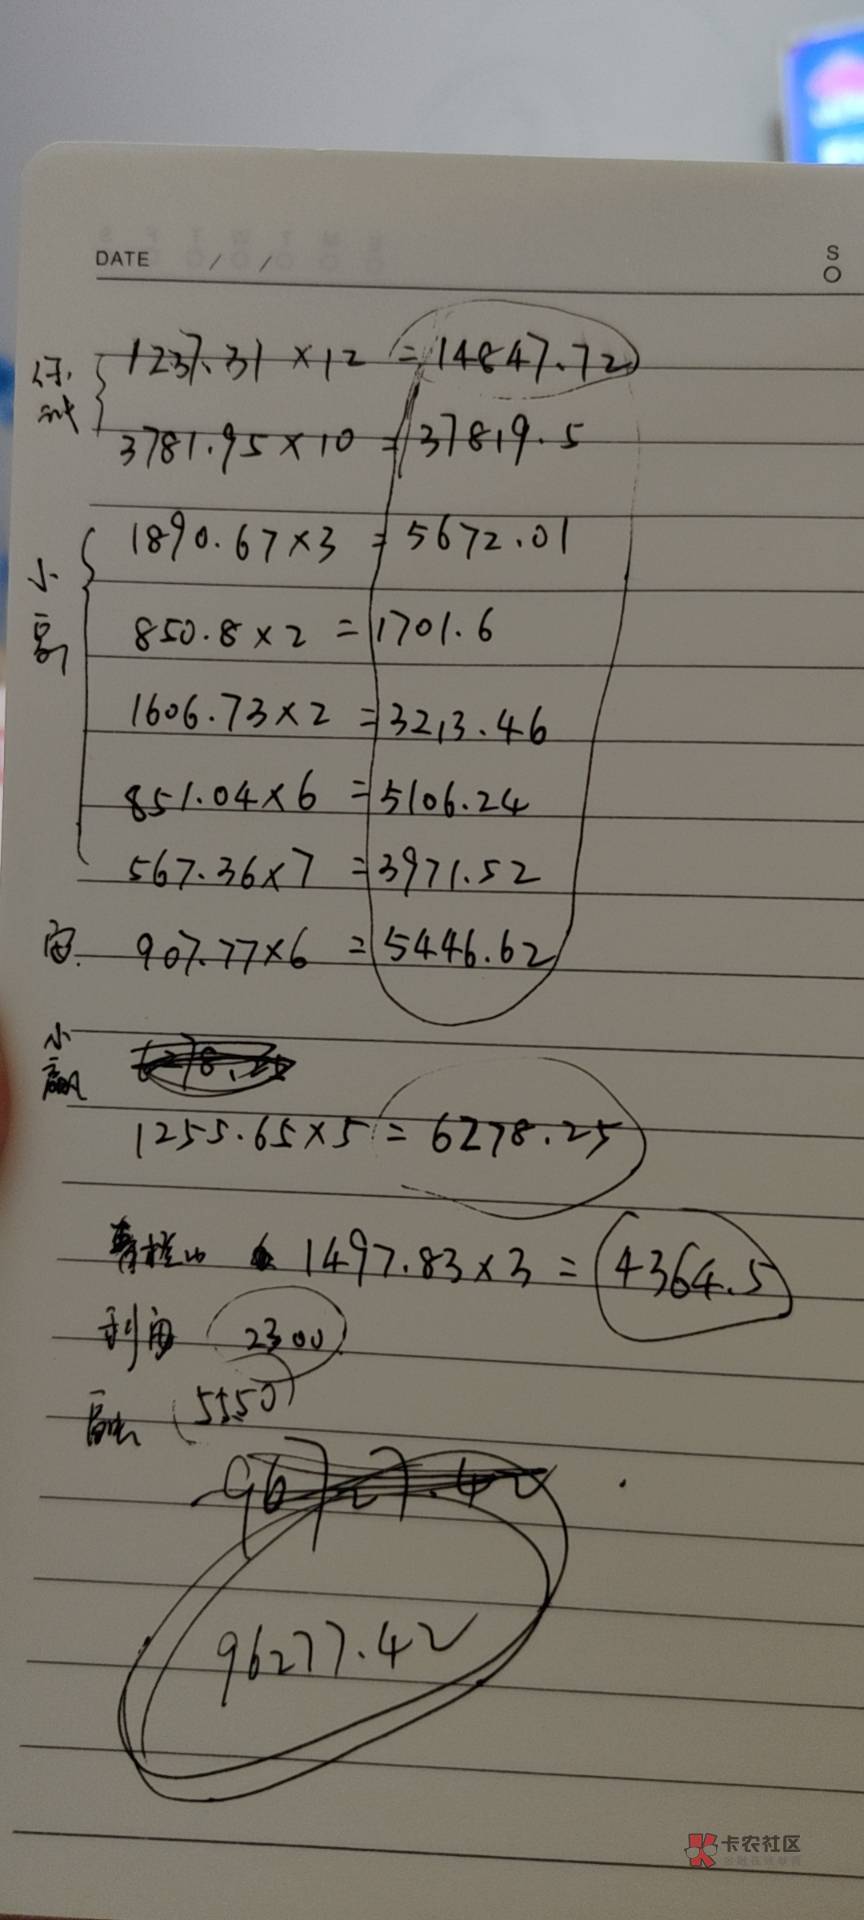 DATE / / S
1237.31 × 12 = 14847.72
3781.95 × 10 = 37819.5
小
1890.67 × 3 = 5672.01
850.8 × 2 = 1701.6
1606.73 × 2 = 3213.46
851.04 × 6 = 5106.24
567.36 × 7 = 3971.52
907.77 × 6 = 5446.62
小赢
1255.65 × 5 = 6278.25
1497.83 × 3 = 4364.5
利用 2300
5550
96727.42
96277.42
卡农社区